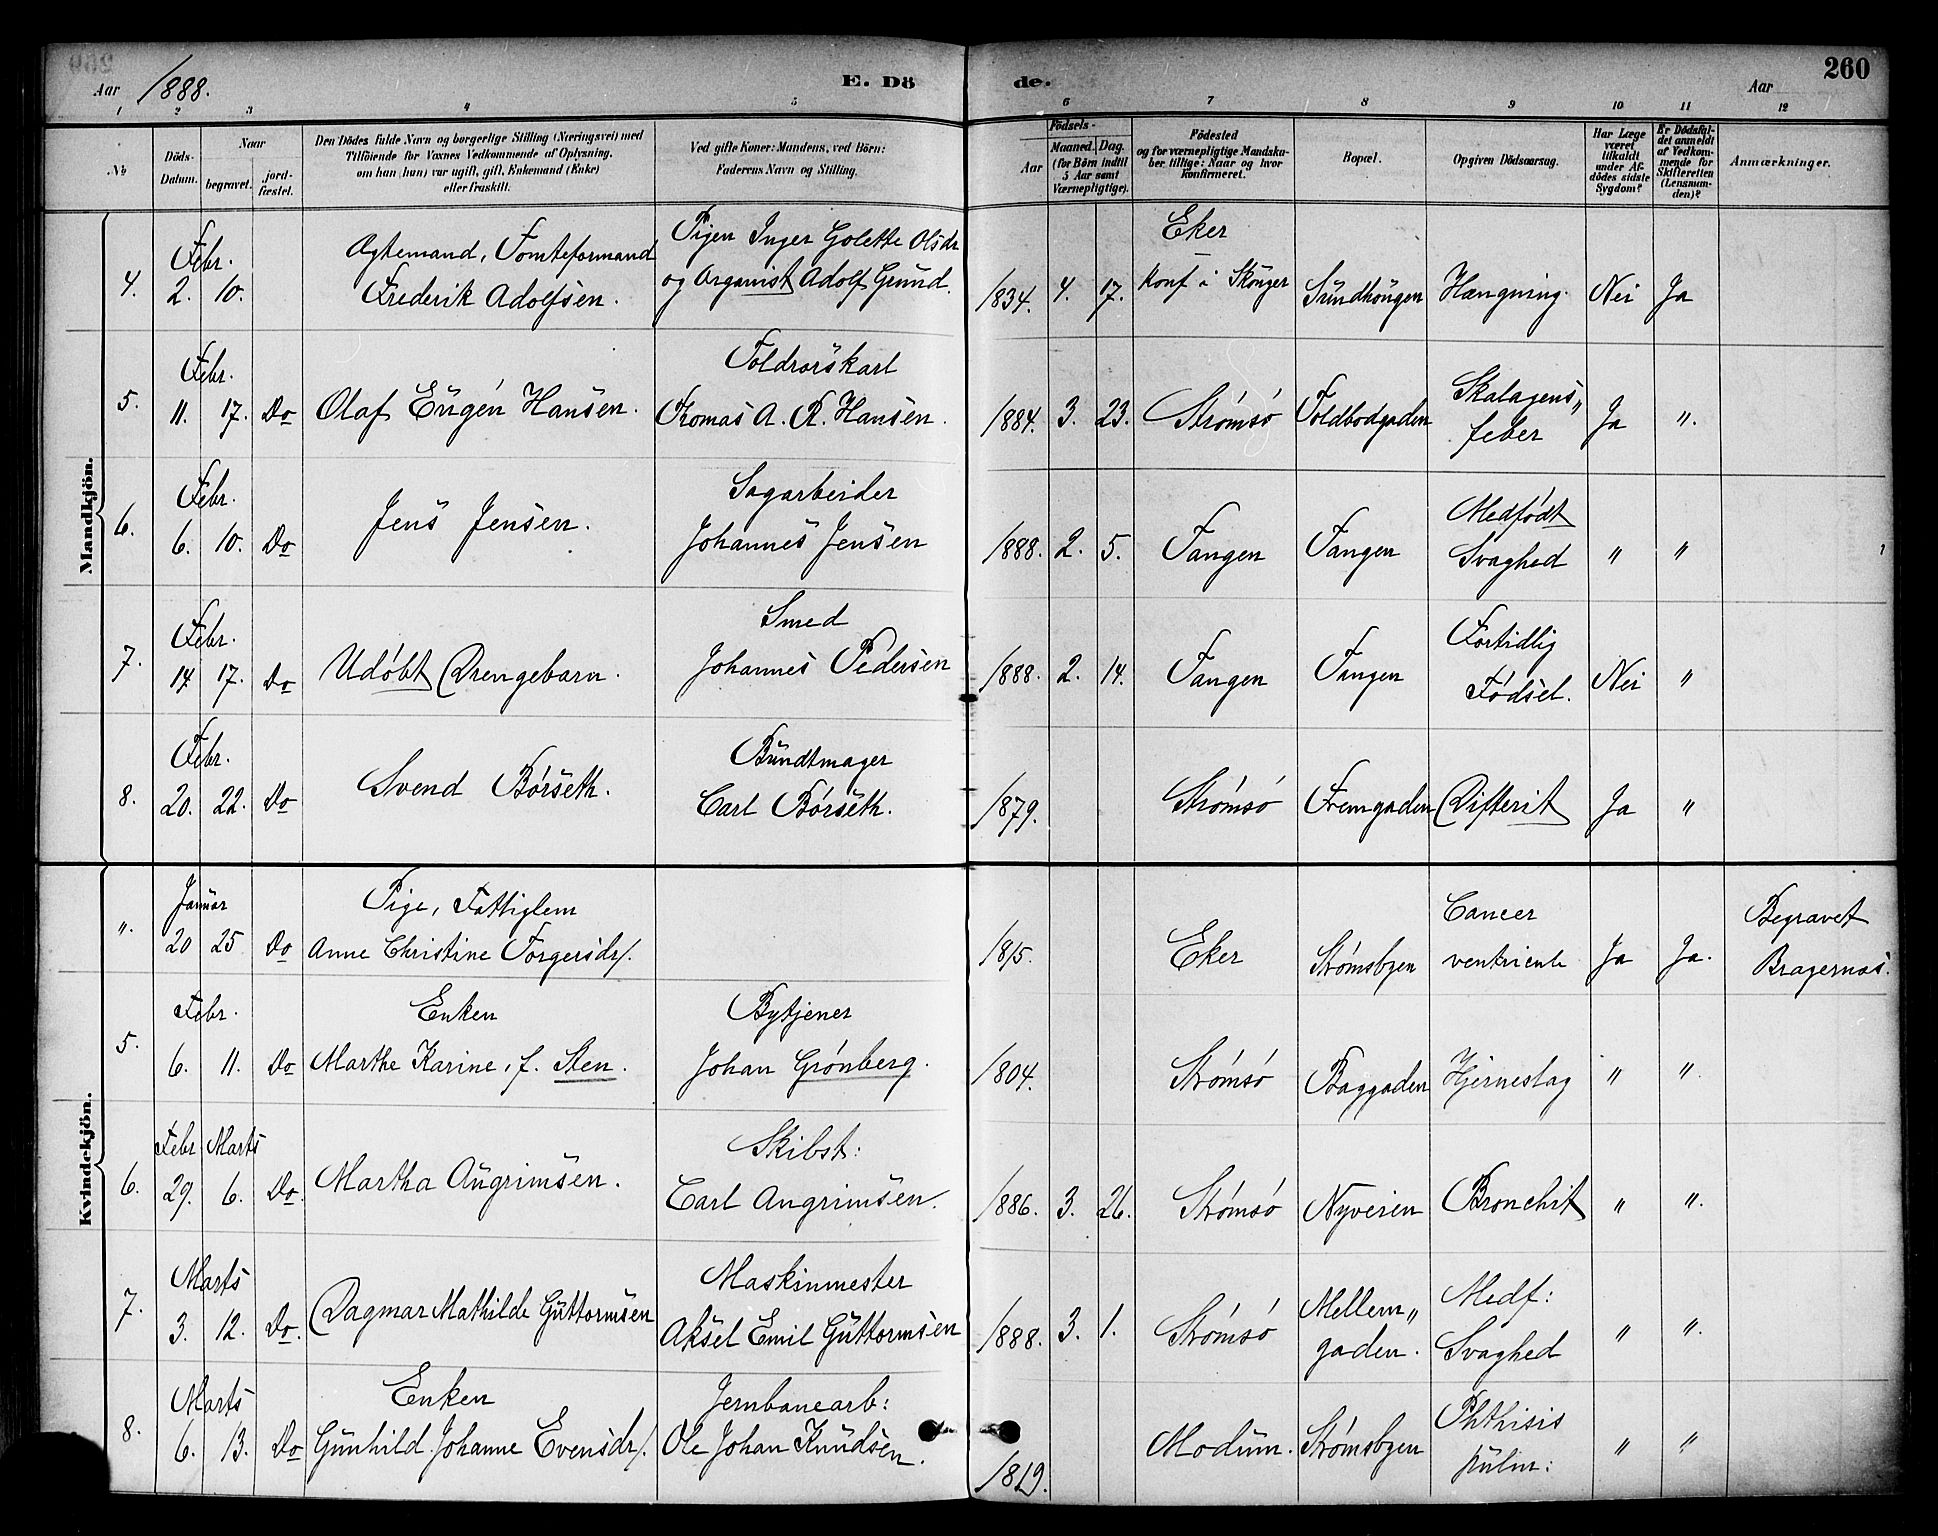 Aar 1888. E. Dö de. Aar 260
1 2 3 4 5 6 7 8 9 10 11 12
№ Döds-Datum. Naar begravet. jordfæstet. Den Dödes fulde Navn og borgerlige Stilling (Næringsvei) med Tilföiende for Voxnes Vedkommende af Oplysning, om han (hun) var ugift, gift, Enkemand (Enke) eller fraskilt. Ved gifte Koner: Mandens, ved Börn: Faderens Navn og Stilling. Aar Födsels- Maaned. Dag. (for Börn indtil 5 Aar samt Værnepligtige). Födested og for værnepligtige Mandskaber tillige: Naar og hvor konfirmeret. Bopæl. Opgiven Dödsaarsag. Har Læge været tilkaldt under Afdödes sidste Sygdom? Er Dödsfaldet anmeldt af Vedkommende for Skifteretten (Lensmanden)? Anmærkninger.
Mandkjön.
Febr. Ægtemand, Tomteformand Pigen Inger Golette Olsdr Eker
4. 2. 10. Frederik Adolfsen. og Organist Adolf Grund. 1834. 4. 17. konf i Skouger Sundhougen Hængning. Nei Ja
Febr. Toldrorskarl Skalagens„
5. 11. 17. Do Olaf Eugén Hansen. Thomas A. R. Hansen. 1884. 3. 23. Strømsø Toldbodgaden feber Ja ".
Febr. Sagarbeider Medfødt
6. 6. 10. Do Jens Jensen. Johannes Jensen 1888. 2. 5. Tangen Tangen Svaghed " "
Febr. Smed Fortidlig
7. 14 17. Do Udøbt Drengebarn. Johannes Pedersen 1888. 2. 14. Tangen Tangen Fødsel. Nei "
Febr. Bundtmager
8. 20. 22. Do Svend Børseth. Carl Børseth. 1879. Strømsø Fremgaden Difterit Ja "
Kvindekjön.
Januar Pige, Fattiglem Cancer Begravet
". 20 25 Do Anne Christine Torgersdr/. 1815. Eker Strømsbyen ventricule Ja Ja. Bragernæs.
Febr. Enken Bytjener
5. 6. 11. Do Marthe Karine, f. Sten. Johan Grønberg. 1804. Strømsø Baggaden Hjerneslag " ".
Febr Marts Skibst:
6. 29. 6. Do. Martha Angrimsen. Carl Angrimsen. 1886. 3. 26. Strømsø Nyveien Bronchit " ".
Marts Maskinmester Mellem„ Medf:
7. 3. 12. Do. Dagmar Mathilde Guttormsen Aksel Emil Guttormsen 1888. 3. 1. Strømsø gaden. Svaghed " ".
Marts Enken Jernbanearb: Phthisis
8. 6. 13. Do Gunhild Johanne Evensdr/. Ole Johan Knudsen. 1819. Modum. Strømsbyen pulm: " "